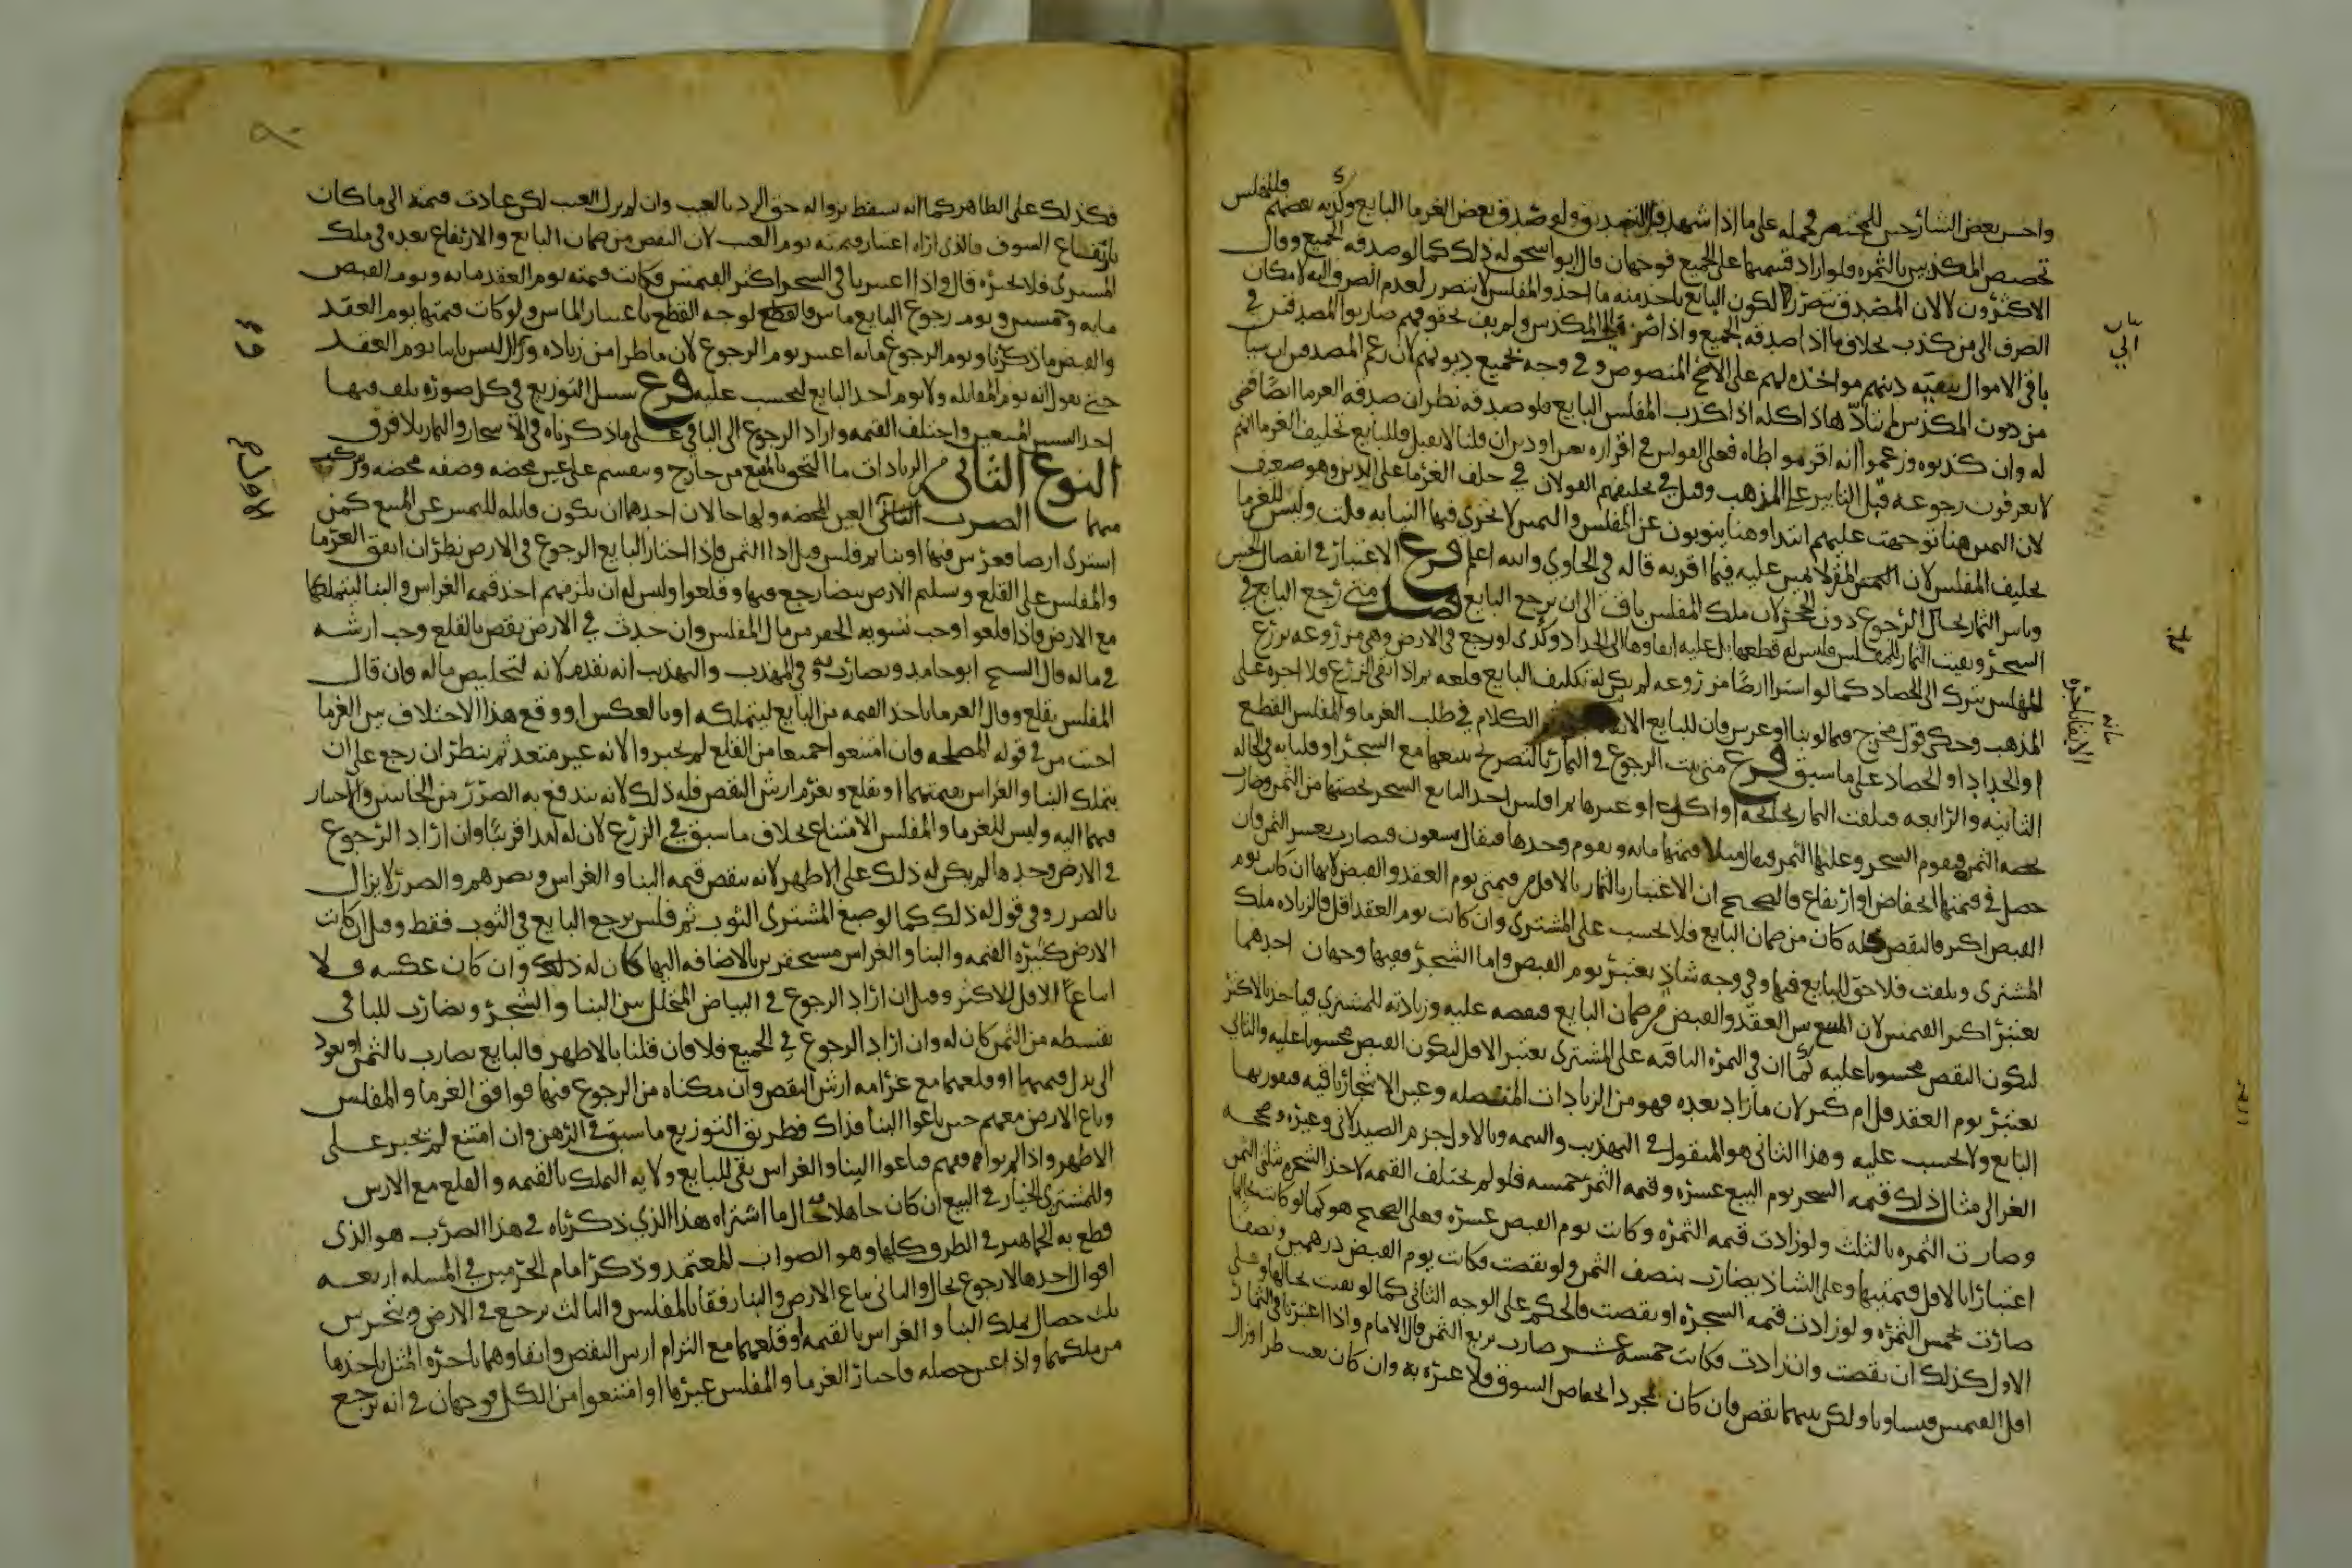 واجرى بعض الشارحين للمختصر محمله على ما اذا شهد قبل التصديق ولو صدق بعض الغرما البايع وكذبه بعضهم فللمفلس
تخصيص المكذبين بالثمره فلو اراد قسمتها على الجميع فوجهان قال ابو اسحق له ذلك كما لو صدقه الجميع وقال
الاكثرون لا لان المصدق يتضرر لكون البايع ياخذ منه ما اخذ والمفلس لا يتضرر لعدم الصرف اليه لامكان
الصرف الى من كذب بخلاف ما اذا صدقه الجميع واذا صرف الى المكذبين ولم يف بحقوقهم ضاربوا المصدقين في
باقي الاموال ببقيه دينهم مواخذه لهم على الاصح المنصوص وفي وجه بجميع ديونهم لان زعم المصدقين ان شيا
من دون المكذبين لم يتادّ هذا كله اذا كذب المفلس البايع فلو صدقه نظر ان صدقه الغرما ايضا قضي
له وان كذبوه وزعموا انه اقر مواطاه فعلى القولين في اقراره بعين او دين ان قلنا لا يقبل فللبايع تحليف الغرما انهم
لا يعرفون رجوعه قبل التابير على المذهب وقيل في تحليفهم القولان في حلف الغرما على الدين وهو ضعيف
لان اليمين هنا توجهت عليهم ابتدا وهنا ينوبون عن المفلس واليمين لا تجزي فيها النيابه قلت وليس للغرما
تحليف المفلس لان المقر لا يمين عليه فيما اقر به قاله في الحاوي والله اعلم فرع الاعتبار في انفصال الجنين
وتابير الثمار بحال الرجوع دون الحجر لان ملك المفلس باق الى ان يرجع البايع فصل متى رجع البايع في
الشجر وبقيت الثمار للمفلس فليس له قطعها بل عليه ابقاوها الى الجداد وكذى لو رجع في الارض وهي مزروعه بزرع
المفلس يترك الى الحصاد كما لو اشترا ارضا مزروعه لم يكن له تكليف البايع قلعه ثم اذا ابقى الزرع فلا اجره على
المذهب وحكى قول مخرج فيما لو بنا او غرس فان للبايع الكلام في طلب الغرما والمفلس القطع
او الجداد او الحصاد على ما سبق فرع متى ثبت الرجوع في الثمار بالتصريح ببيعها مع الشجر او قلنا به في الحاله
الثانيه والرابعه فتلفت الثمار بجائحه او اكل او غيرها ثم افلس اخذ البايع الشجر بحصتها من الثمن وضارب
بحصه الثمر فيقوم الشجر وعليها الثمر فيقال مثلا قيمتها مايه ويقوم وحدها فيقال تسعون فيضارب بعشر الثمن فان
حصل في قيمتها انخفاض او ارتفاع فالصحيح ان الاعتبار بالثمار بالاقل من قيمتي يوم العقد والقبض لانها ان كانت يوم
القبض اكثر فالنقص قبله كان من ضمان البايع فلا يحسب على المشترى وان كانت يوم العقد اقل فالزياده ملك
المشترى وتلفت فلا حق للبايع فيها وفي وجه شاذ يعتبر يوم القبض واما الشجر ففيها وجهان احدهما
يعتبر اكثر القيمتين لان المبيع بين العقد والقبض من ضمان البايع فنقصه عليه وزيادته للمشتري فياخذ بالاكثر
ليكون النقص محسوبا عليه كما ان في الثمره الباقيه على المشترى يعتبر الاقل ليكون القبض محسوبا عليه والثاني
يعتبر يوم العقد قل ام كثر لان ما زاد بعده فهو من الزيادات المتصله وعين الاشجار باقيه فيفوز بها
البايع ولا يحسب عليه وهذا الثاني هو المنقول في التهذيب والتتمه وبالاول جزم الصيدلاني وغيره وصححه
الغزالى مثال ذلك قيمه الشجر يوم البيع عشره وقيمه الثمر خمسه فلو لم تختلف القيمه لاخذ الشجره بثلثي الثمن
وضارب الثمره بالثلث ولو زادت قيمه الثمره وكانت يوم القبض عشره فعلى الصحيح هو كما لو كانت بحالها
اعتبارا بالاقل قيمتيها وعلى الشاذ يضارب بنصف الثمن ولو نقصت فكانت يوم القبض درهمين ونصفا
ضارب بخمس الثمره ولو زادت قيمه الشجره او نقصت فالحكم على الوجه الثاني كما لو بقيت بحالها وعلى
الاول كذلك ان نقصت وان زادت فكانت خمسه عشر ضارب بربع الثمن قال الامام واذا اعتبرنا في الثمار
اقل القيمتين فتساويا ولكن بينهما نقص فان كان لمجرد انخفاض السوق فلا عبره به وان كان بعيب طرا وزال
فكذلك على الظاهر كما انه يسقط بزواله حق الرد بالعيب وان لم يزل العيب لكن عادت قيمته الى ما كان
بارتفاع السوق فالذى اراه اعتبار قيمته يوم العيب لان النقص من ضمان البايع والارتفاع بعده في ملك
المشترى فلا تجبره قال واذا اعتبرنا في الشجر اكثر القيمتين فكانت قيمته يوم العقد مايه ويوم القبض
مايه وخمسين ويوم رجوع البايع مايتين فالقطع لوجه القطع باعتبار المايتين ولو كانت قيمتها يوم العقد
والقبض ما ذكرنا ويوم الرجوع مايه اعتبر يوم الرجوع لان ما طرا من زياده وزال ليس ثابتا يوم العقد
حتى نقول انه يوم المقابله ولا يوم اخذ البايع لتحسب عليه فرع سبيل التوزيع في كل صوره تلف فيها
احد الشيين المبيعين واختلف القيمه واراد الرجوع الى الباقي على ما ذكرناه في الاشجار والثمار بلا فرق
النوع الثاني من الزيادات ما التحق بالمبيع من خارج وينقسم على عين محضه وصفه محضه ومركب
منهما الضرب العين المحضه ولها حالان احدهما ان يكون قابله للتميز عن المبيع كمن
اشترى ارضا فغرس فيها او بنا ثم فلس قبل ادا الثمن فاذا اختار البايع الرجوع في الارض نظر ان اتفق الغرما
والمفلس على القلع وسليم الارض بيضا رجع فيها وقلعوا وليس له ان يلزمهم اخذ قيمه الغراس والبنا ليتملكها
مع الارض واذا قلعوا وجب تسويه الحفر من مال المفلس وان حدث في الارض نقص بالقلع وجب ارشه
في ماله قال الشيخ ابو حامد ويضارب به وفي المهذب والتهذيب انه يقدم لانه لتخليص ماله وان قال
المفلس يقلع وقال الغرما ناخذ القيمه من البايع ليتملكه او بالعكس او وقع هذا الاختلاف بين الغرما
اجيب من في قوله المصلحه وان امتنعوا جميعا من القلع لم يجبروا لانه غير متعد ثم ينظر ان رجع على ان
يتملك البنا والغراس بقيمتهما او يقلع ويغرم ارش النقص فله ذلك لانه يندفع به الضرر من الجانبين والاختيار
فيهما اليه وليس للغرما والمفلس الامتناع بخلاف ما سبق في الزرع لان له امدا قريبا وان اراد الرجوع
في الارض وحدها لم يكن له ذلك على الاظهر لانه ينقص قيمه البنا والغراس ويضرهم والضرر لا يزال
بالضرر وفي قول له ذلك كما لو صبغ المشترى الثوب ثم فلس يرجع البايع في الثوب فقط وقيل ان كانت
الارض كثيره القيمه والبنا والغراس مستحقرين بالاضافه اليها كان له ذلك وان كان عكسه فلا
اتباعًا للاقل للاكثر وقيل ان اراد الرجوع في البياض المتخلل بين البنا والشجر ويضارب للباقي
بقسطه من الثمن كان له وان اراد الرجوع في الجميع فلا فان قلنا بالاظهر فالبايع يضارب بالثمن او يعود
الى بذل قيمتهما او قلعهما مع غرامه ارش النقص وان مكناه من الرجوع فيها فوافق الغرما والمفلس
وباع الارض معهم حين باعوا البنا فذاك وطريق التوزيع ما سبق في الرهن وان امتنع لم يجبر على
الاظهر واذا لم يوافقهم فباعوا البنا والغراس بقى للبايع ولايه التملك بالقيمه والقلع مع الارش
وللمشترى الخيار في البيع ان كان جاهلا بحال ما اشتراه هذا الذي ذكرناه في هذا الضرب هو الذى
قطع به الجماهير في الطرق كلها وهو الصواب المعتمد وذكر امام الحرمين في المساله اربعه
اقوال احدها لا رجوع بحال والثاني تباع الارض والبنا رفقا بالمفلس والثالث يرجع في الارض ويتخير بين
ثلث خصال تملك البنا والغراس بالقيمه او قلعهما مع التزام ارش النقص وابقاوهما باجره المثل ياخذها
من ملكهما واذا عين خصله فاختار الغرما والمفلس غيرها او امتنعوا من الكل فوجهان في انه يرجع